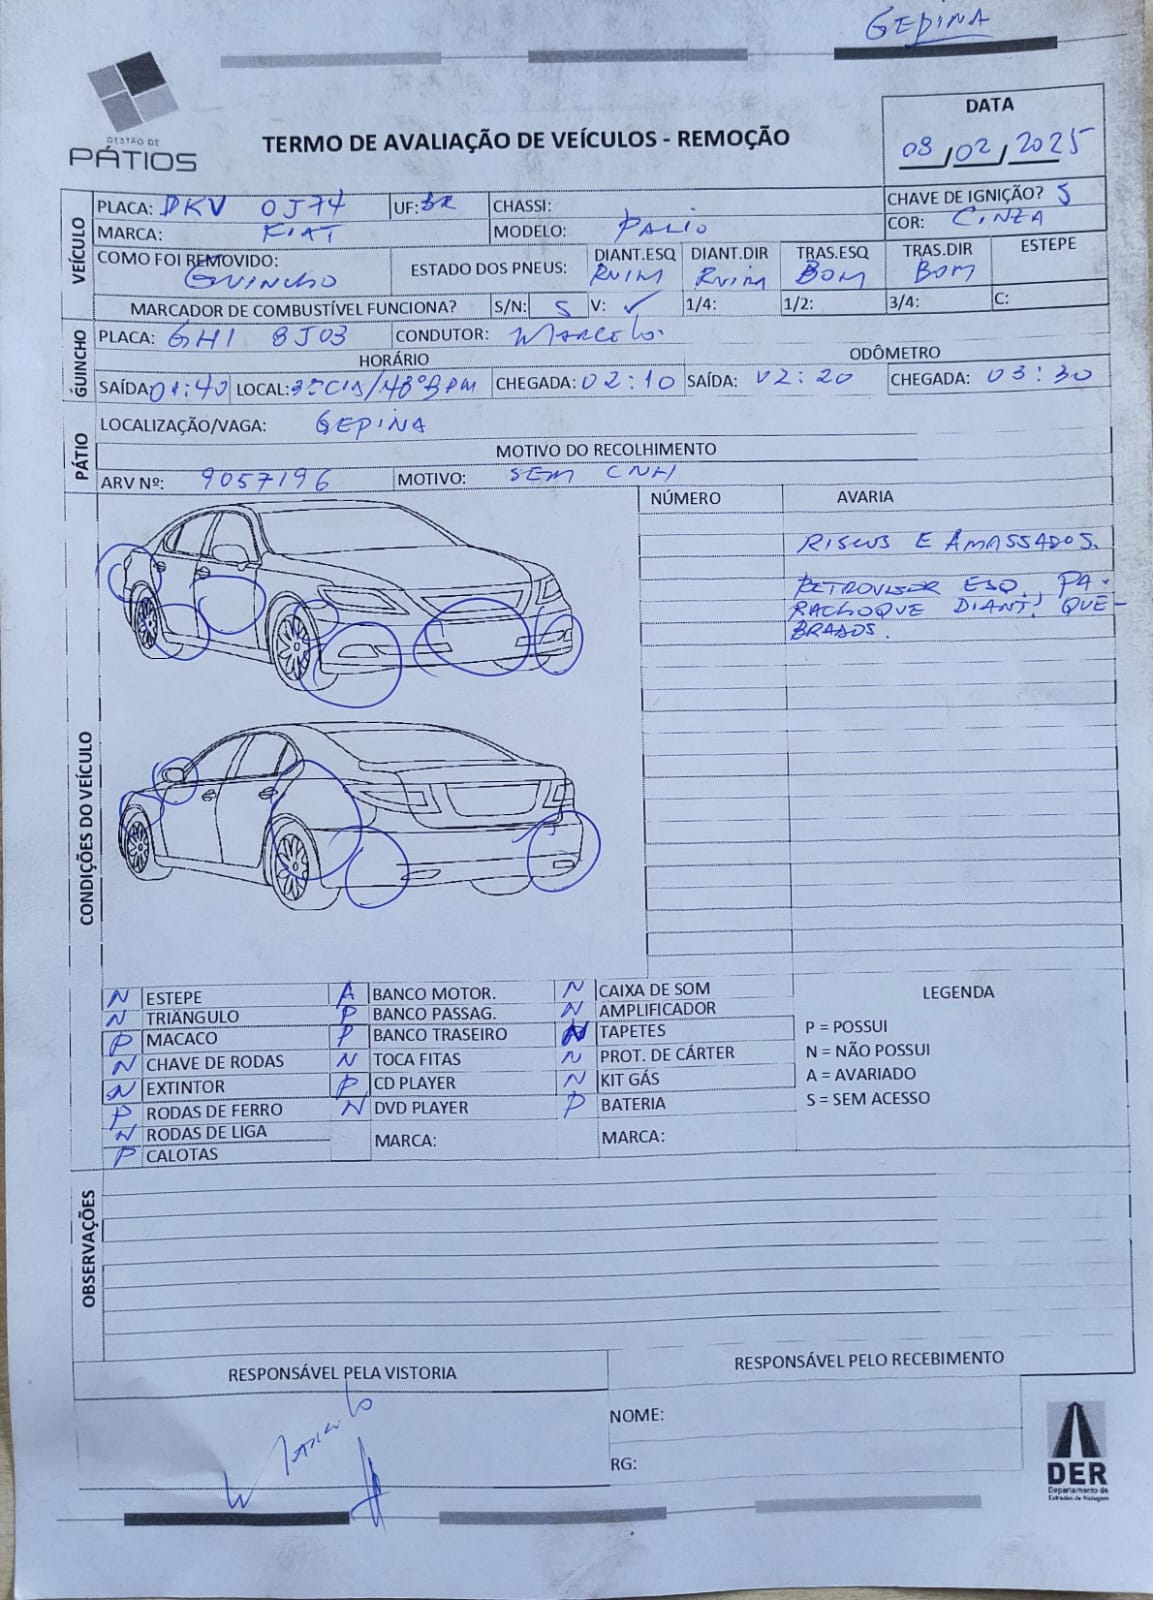 GEPINA
GESTÃO DE
PÁTIOS
TERMO DE AVALIAÇÃO DE VEÍCULOS - REMOÇÃO
DATA
08/02/2025
VEÍCULO
PLACA: DKV 0J74 UF: BR CHASSI: CHAVE DE IGNIÇÃO? S
MARCA: FIAT MODELO: PALIO COR: CINZA
COMO FOI REMOVIDO: GUINCHO ESTADO DOS PNEUS: DIANT.ESQ RUIM DIANT.DIR RUIM TRAS.ESQ BOM TRAS.DIR BOM ESTEPE
MARCADOR DE COMBUSTÍVEL FUNCIONA? S/N: S V: ✓ 1/4: 1/2: 3/4: C:
GUINCHO
PLACA: GHI 8J03 CONDUTOR: MARCELO.
HORÁRIO ODÔMETRO
SAÍDA 01:40 LOCAL: 3ª CIA/48º BPM CHEGADA: 02:10 SAÍDA: 02:20 CHEGADA: 03:30
PÁTIO
LOCALIZAÇÃO/VAGA: GEPINA
MOTIVO DO RECOLHIMENTO
ARV Nº: 9057196 MOTIVO: SEM CNH
CONDIÇÕES DO VEÍCULO
NÚMERO AVARIA
RISCOS E AMASSADOS.
RETROVISOR ESQ., PA-
RACHOQUE DIANT. QUE-
BRADOS.
N ESTEPE A BANCO MOTOR. N CAIXA DE SOM
N TRIÂNGULO P BANCO PASSAG. N AMPLIFICADOR
P MACACO P BANCO TRASEIRO N TAPETES
N CHAVE DE RODAS N TOCA FITAS N PROT. DE CÁRTER
N EXTINTOR P CD PLAYER N KIT GÁS
P RODAS DE FERRO N DVD PLAYER P BATERIA
N RODAS DE LIGA MARCA: MARCA:
P CALOTAS
LEGENDA
P = POSSUI
N = NÃO POSSUI
A = AVARIADO
S = SEM ACESSO
OBSERVAÇÕES
RESPONSÁVEL PELA VISTORIA
RESPONSÁVEL PELO RECEBIMENTO
Marcelo
NOME:
RG:
DER
Departamento de
Estradas de Rodagem